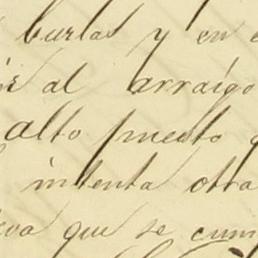 burlas y en
al arraigo
alto puesto
intenta otra
que se cum